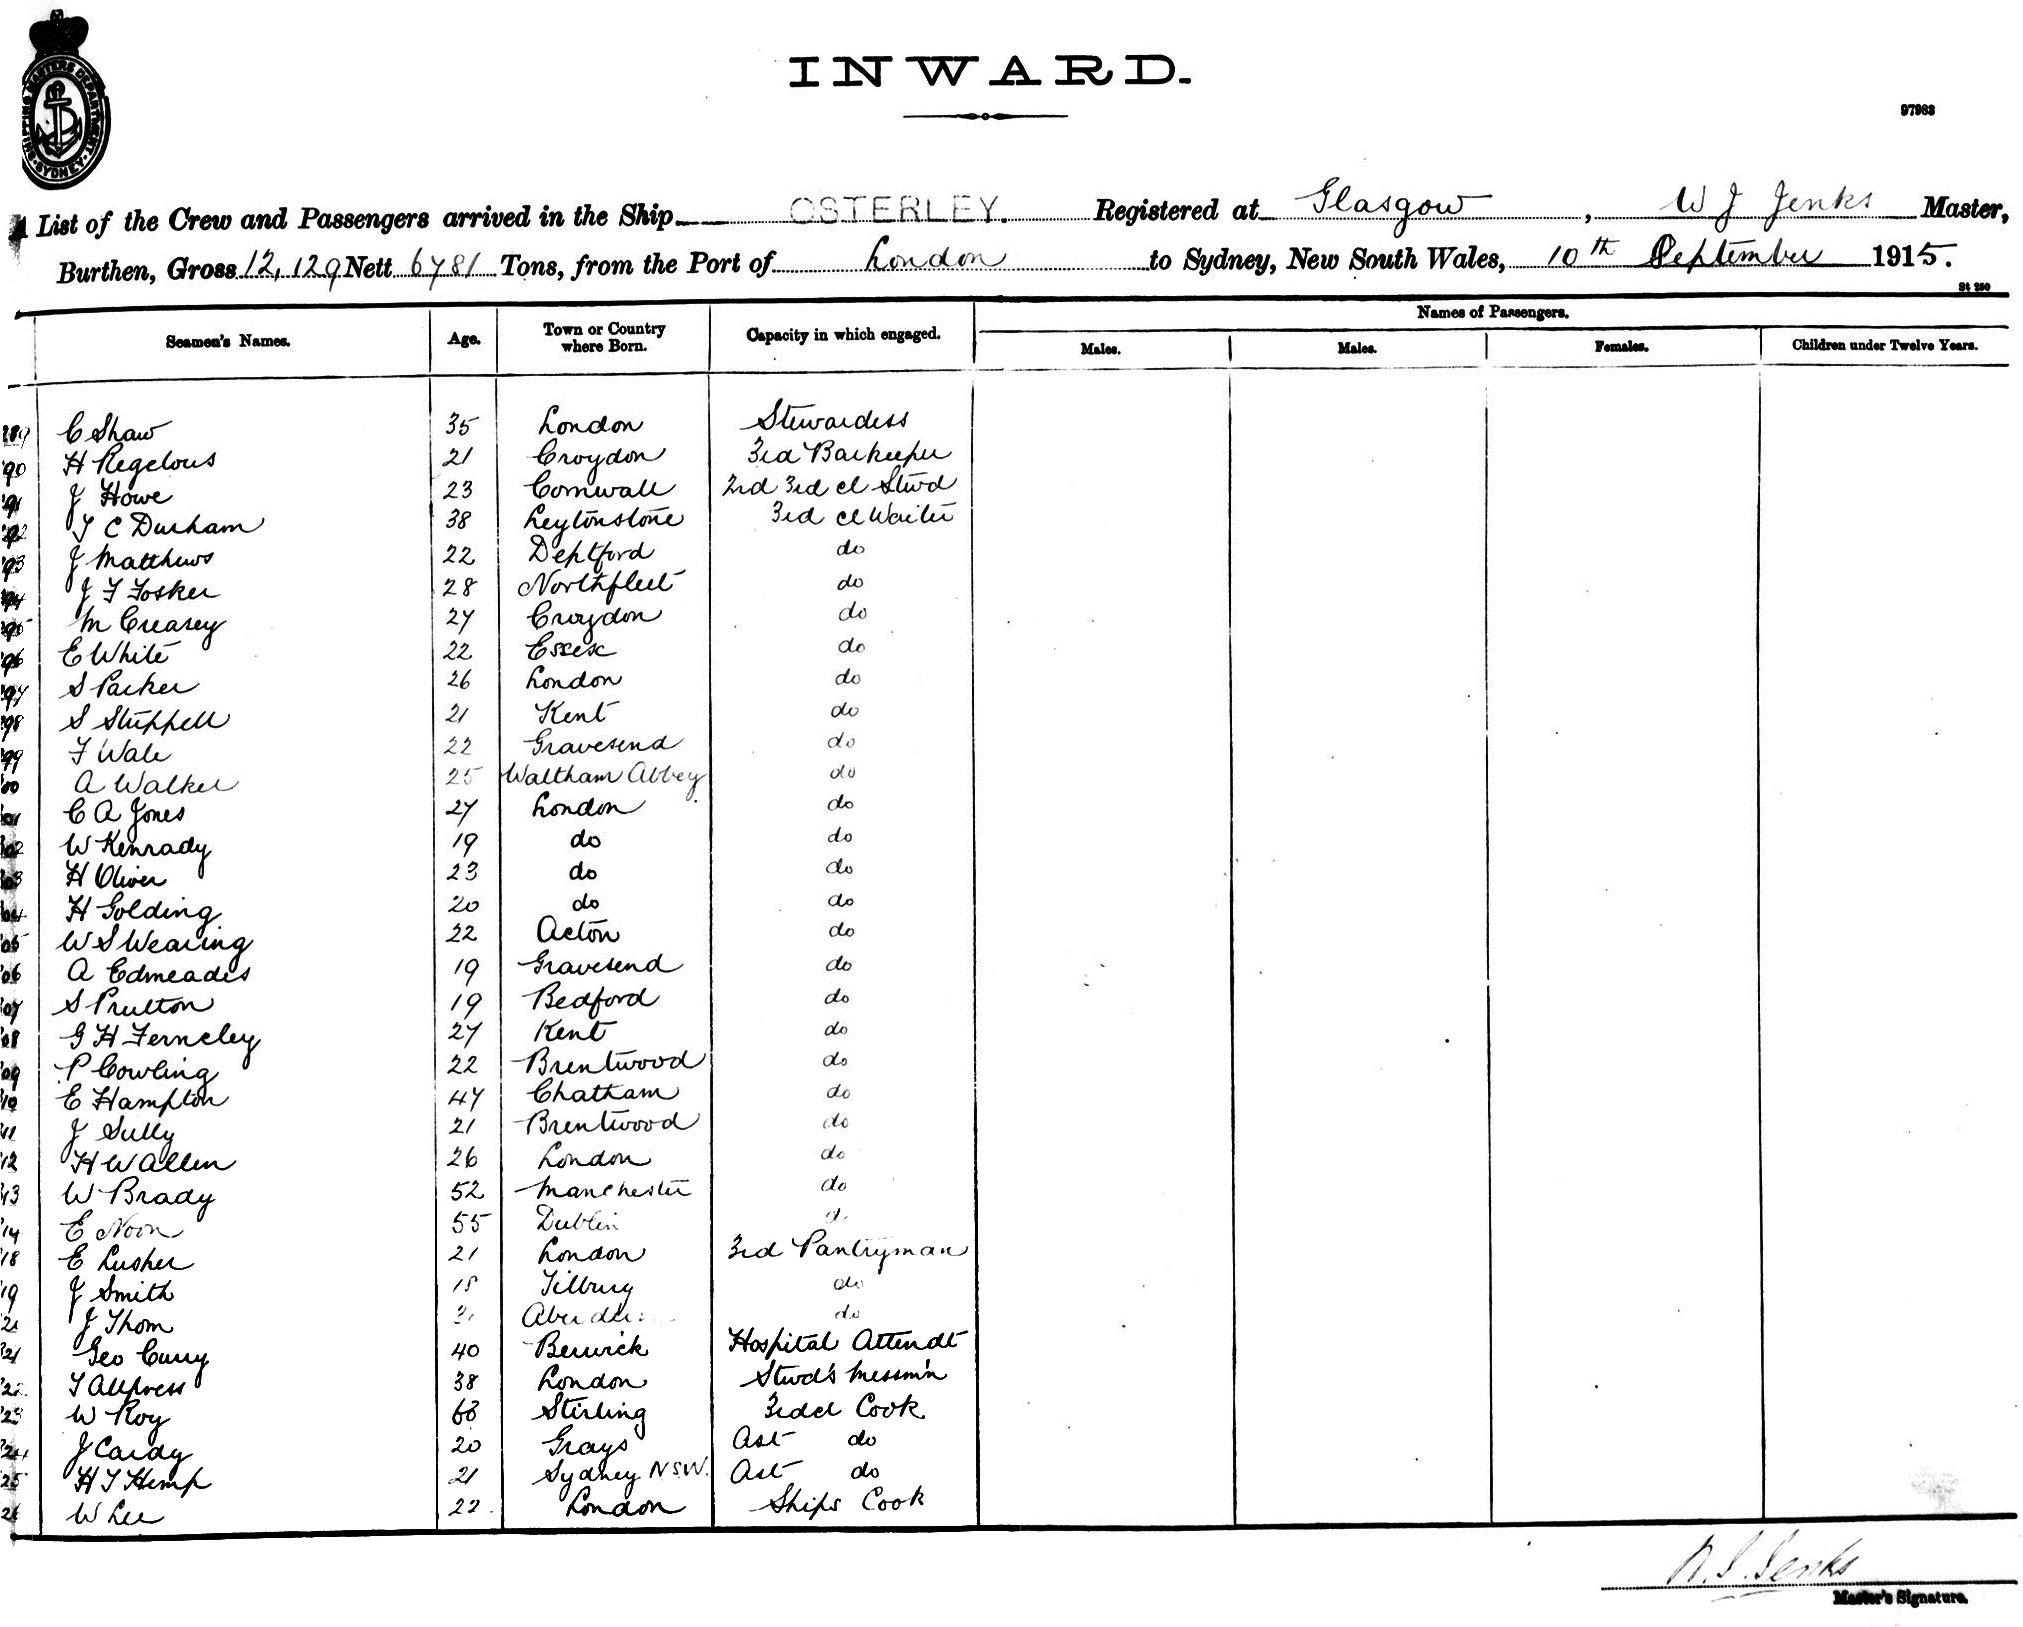 INWARD.
97983
SHIPPING MASTERS DEPARTMENT SYDNEY
List of the Crew and Passengers arrived in the Ship OSTERLEY. Registered at Glasgow, W J Jenks Master,
Burthen, Gross 12,129 Nett 6781 Tons, from the Port of London to Sydney, New South Wales, 10th September 1915.
St 250
Names of Passengers.
Seamen's Names. Age. Town or Country where Born. Capacity in which engaged. Males. Males. Females. Children under Twelve Years.
C Shaw 35 London Stewardess
90 H Regelous 21 Croydon 3rd Barkeeper
91 J Howe 23 Cornwall 2nd 3rd cl Stwd
92 T C Durham 38 Leytonstone 3rd cl Waiter
93 J Matthews 22 Deptford do
94 J F Fosker 28 Northfleet do
95 M Creasey 27 Croydon do
96 E White 22 Essex do
97 S Parker 26 London do
98 S Stuppell 21 Kent do
99 F Wale 22 Gravesend do
00 A Walker 25 Waltham Abbey do
01 C A Jones 27 London do
02 W Kenrady 19 do do
03 H Oliver 23 do do
04 H Golding 20 do do
05 W S Wearing 22 Acton do
06 A Edmeades 19 Gravesend do
07 S Prutton 19 Bedford do
08 G H Ferneley 27 Kent do
09 P Cowling 22 Brentwood do
10 E Hampton 47 Chatham do
11 J Sully 21 Brentwood do
12 H W Allen 26 London do
13 W Brady 52 Manchester do
14 E Noon 55 Dublin
18 E Lusher 21 London 3rd Pantryman
19 J Smith 18 Tilbury do
J Thom do
21 Geo Curry 40 Berwick Hospital Attendt
22 T Allpress 38 London Stwd's Messm'n
23 W Roy 63 Stirling 3rd cl Cook
24 J Cardy 20 Grays Ast do
25 H T Hemp 21 Sydney NSW. Ast do
26 W Lee 22 London Ships Cook
W. J. Jenks
Master's Signature.